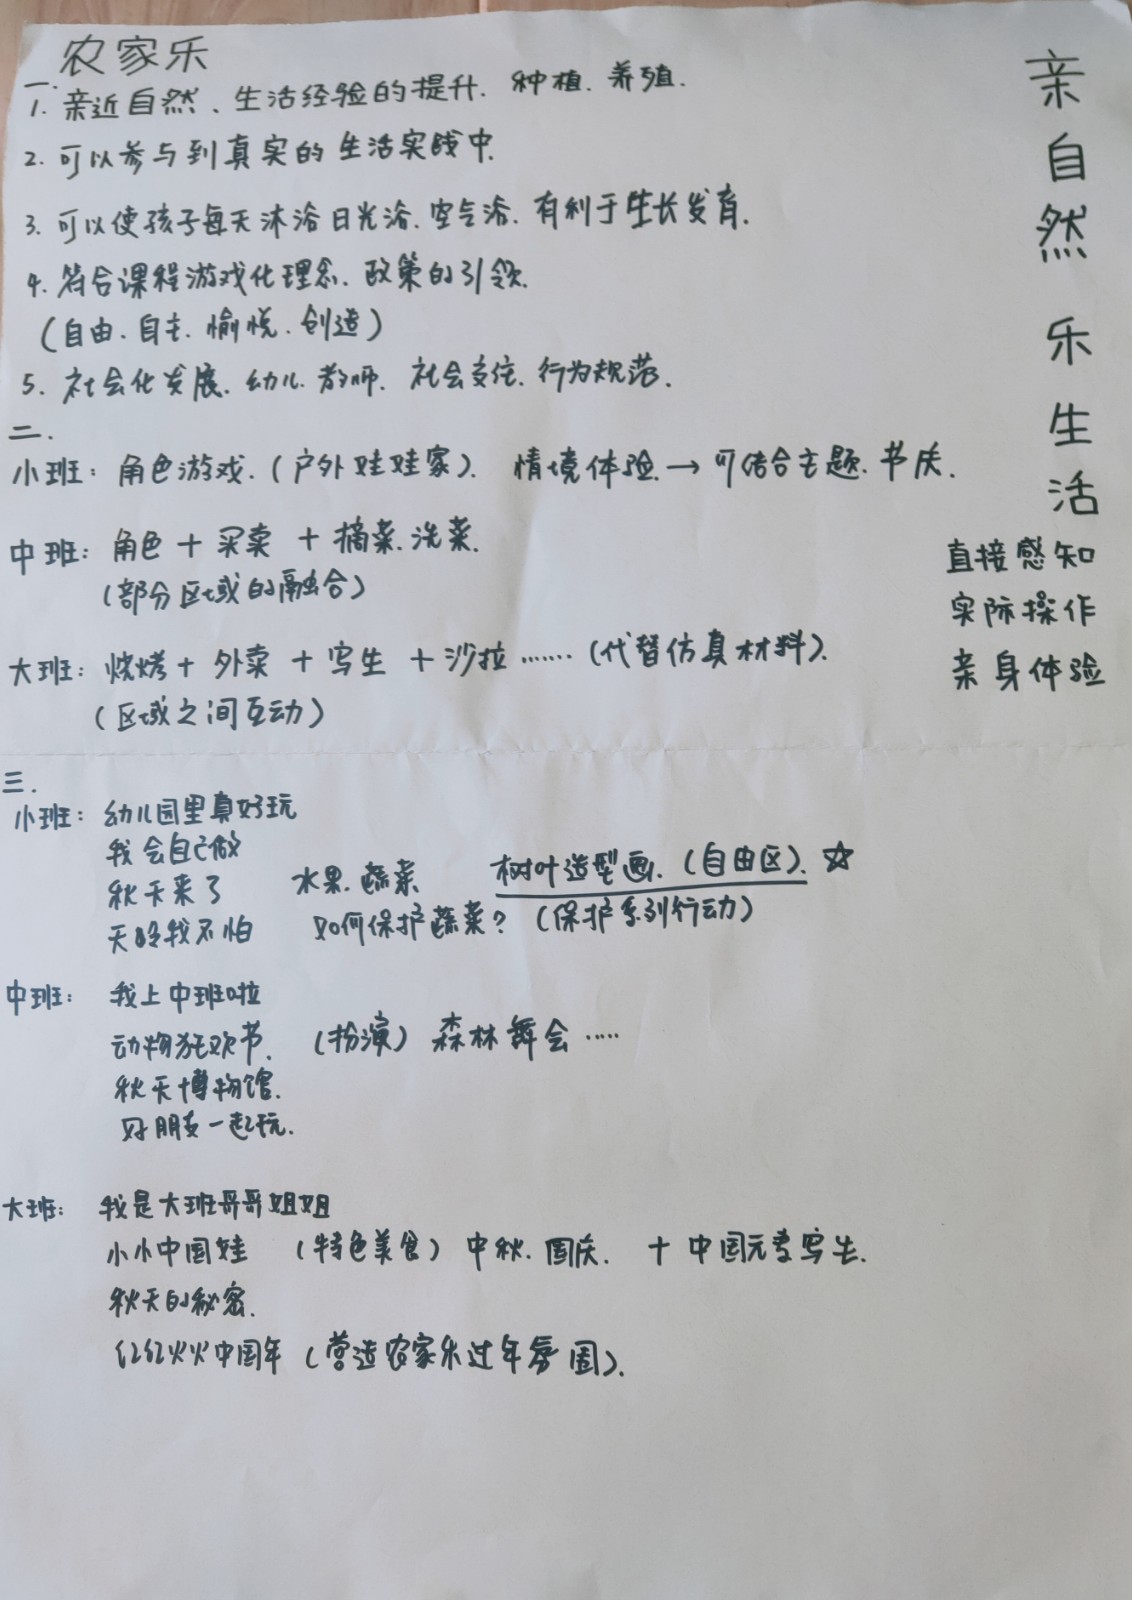 农家乐
一.
1. 亲近自然、生活经验的提升. 种植. 养殖.
2. 可以参与到真实的生活实践中.
3. 可以使孩子每天沐浴日光浴. 空气浴. 有利于生长发育.
4. 符合课程游戏化理念. 政策的引领.
(自由. 自主. 愉悦. 创造)
5. 社会化发展. 幼儿. 教师. 社会交往. 行为规范.
二.
小班: 角色游戏. (户外娃娃家). 情境体验 → 可结合主题. 节庆.
中班: 角色 + 买卖 + 摘菜. 洗菜.
(部分区域的融合)
大班: 烧烤 + 外卖 + 写生 + 沙拉 ...... (代替仿真材料).
(区域之间互动)
亲自然 乐生活
直接感知
实际操作
亲身体验
三.
小班: 幼儿园里真好玩
我会自己做
秋天来了 水果. 蔬菜 树叶造型画. (自由区). ☆
天冷我不怕 如何保护蔬菜? (保护系列行动)
中班: 我上中班啦
动物狂欢节. (扮演) 森林舞会 .....
秋天博物馆.
好朋友一起玩.
大班: 我是大班哥哥姐姐
小小中国娃 (特色美食) 中秋. 国庆. + 中国元素写生.
秋天的秘密.
红红火火中国年 (营造农家乐过年氛围).